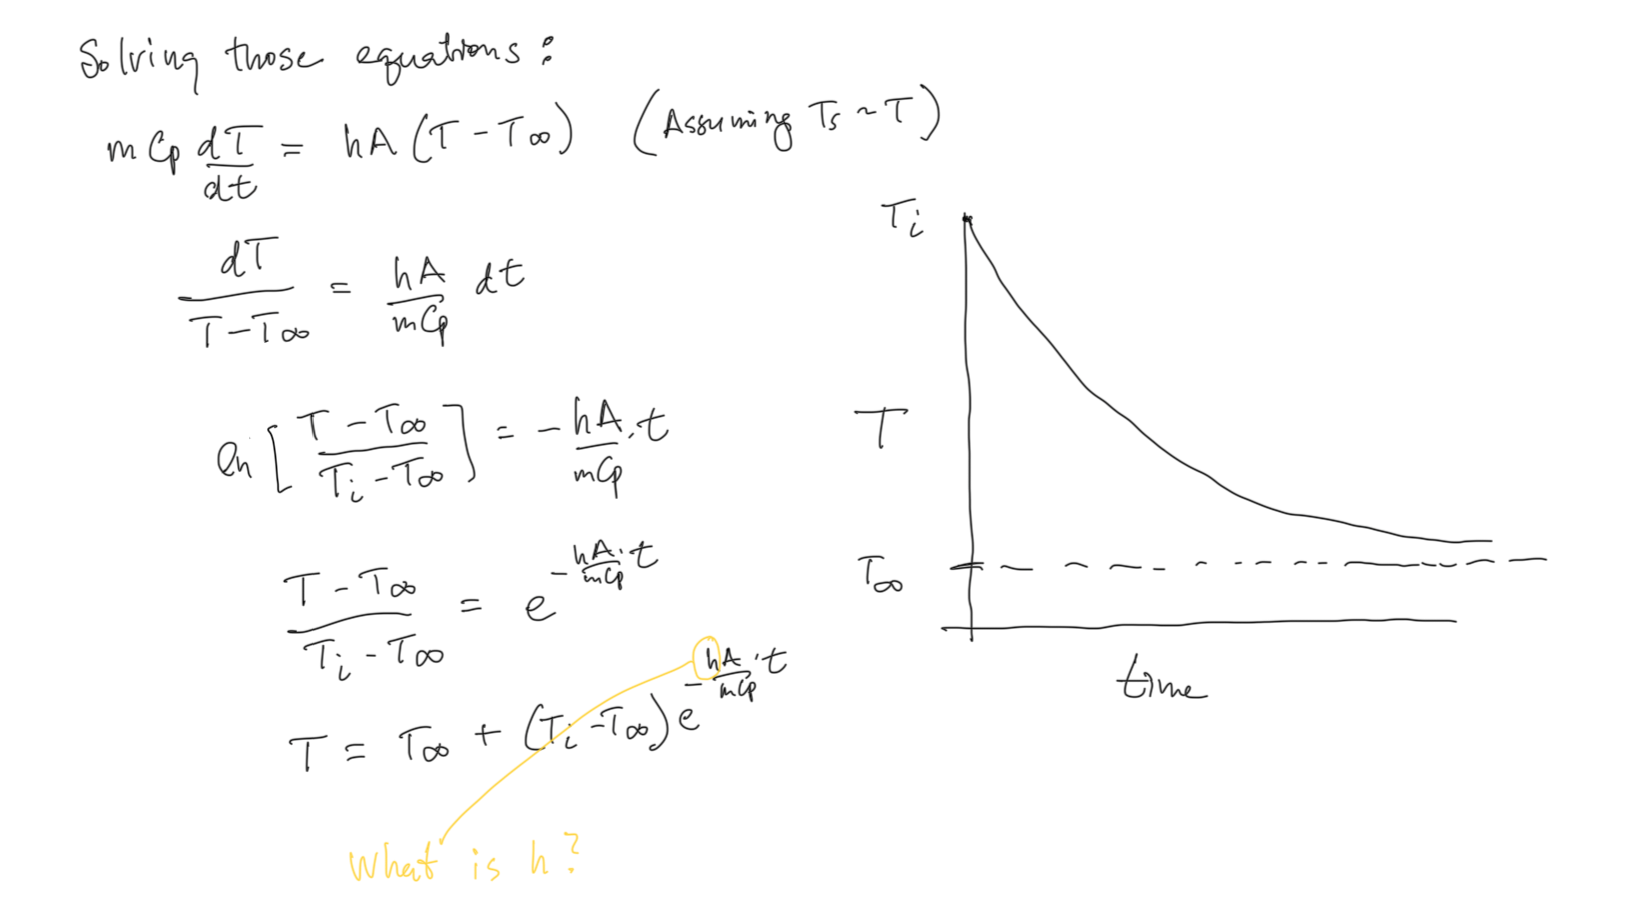 Solving those equations:
mCp dT/dt = hA(T - T∞) (Assuming Ts ~ T)
dT/(T - T∞) = hA/mCp dt
ln[(T - T∞)/(Ti - T∞)] = - hA/mCp · t
(T - T∞)/(Ti - T∞) = e^(- hA/mCp · t)
T = T∞ + (Ti - T∞) e^(- hA/mCp · t)
What is h?
Ti
T
T∞
time